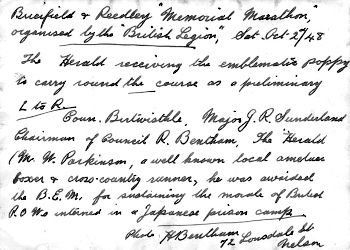 Brierfield & Reedley "Memorial Marathon",
organised by the "British Legion", Sat. Oct 2nd/48
The Herald receiving the emblematic Poppy
to carry round the course as a preliminary
L to R.
Coun. Birtwistle, Major J. R. Sunderland
Chairman of Council R. Bentham, The "Herald
(Mr. W. Parkinson, a well known local amateur
boxer & cross-country runner, he was awarded
the B.E.M. for sustaining the morale of British
P.O.Ws interned in a Japanese prison camp
Photo H Bentham
72 Lonsdale St
Nelson